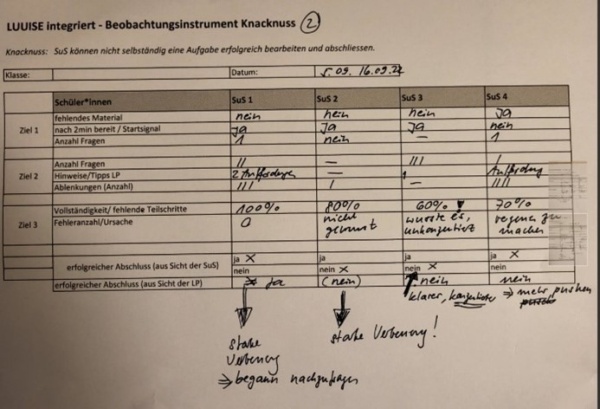 LUUISE integriert - Beobachtungsinstrument Knacknuss (2)
Knacknuss: SuS können nicht selbständig eine Aufgabe erfolgreich bearbeiten und abschliessen.
Klasse: Datum: 5.09. 16.09.22
Schüler*innen SuS 1 SuS 2 SuS 3 SuS 4
Ziel 1
fehlendes Material nein nein nein Ja
nach 2min bereit / Startsignal Ja Ja Ja nein
Anzahl Fragen 1 nein — 1
Ziel 2
Anzahl Fragen || — ||| /
Hinweise/Tipps LP 2 — 1
Ablenkungen (Anzahl) |||| / — ||||
Ziel 3
Vollständigkeit/ fehlende Teilschritte 100% 80% 60% ! 70%
Fehleranzahl/Ursache 0 nicht gewusst wusste es, unkonzentriert zu machen
erfolgreicher Abschluss (aus Sicht der SuS) ja X ja ja ja X
nein nein X nein X nein
erfolgreicher Abschluss (aus Sicht der LP) Ja (nein) nein nein
klarer, ⇒ mehr pushen
starke Verbesserung starke Verbesserung!
⇒ begann nachzufragen